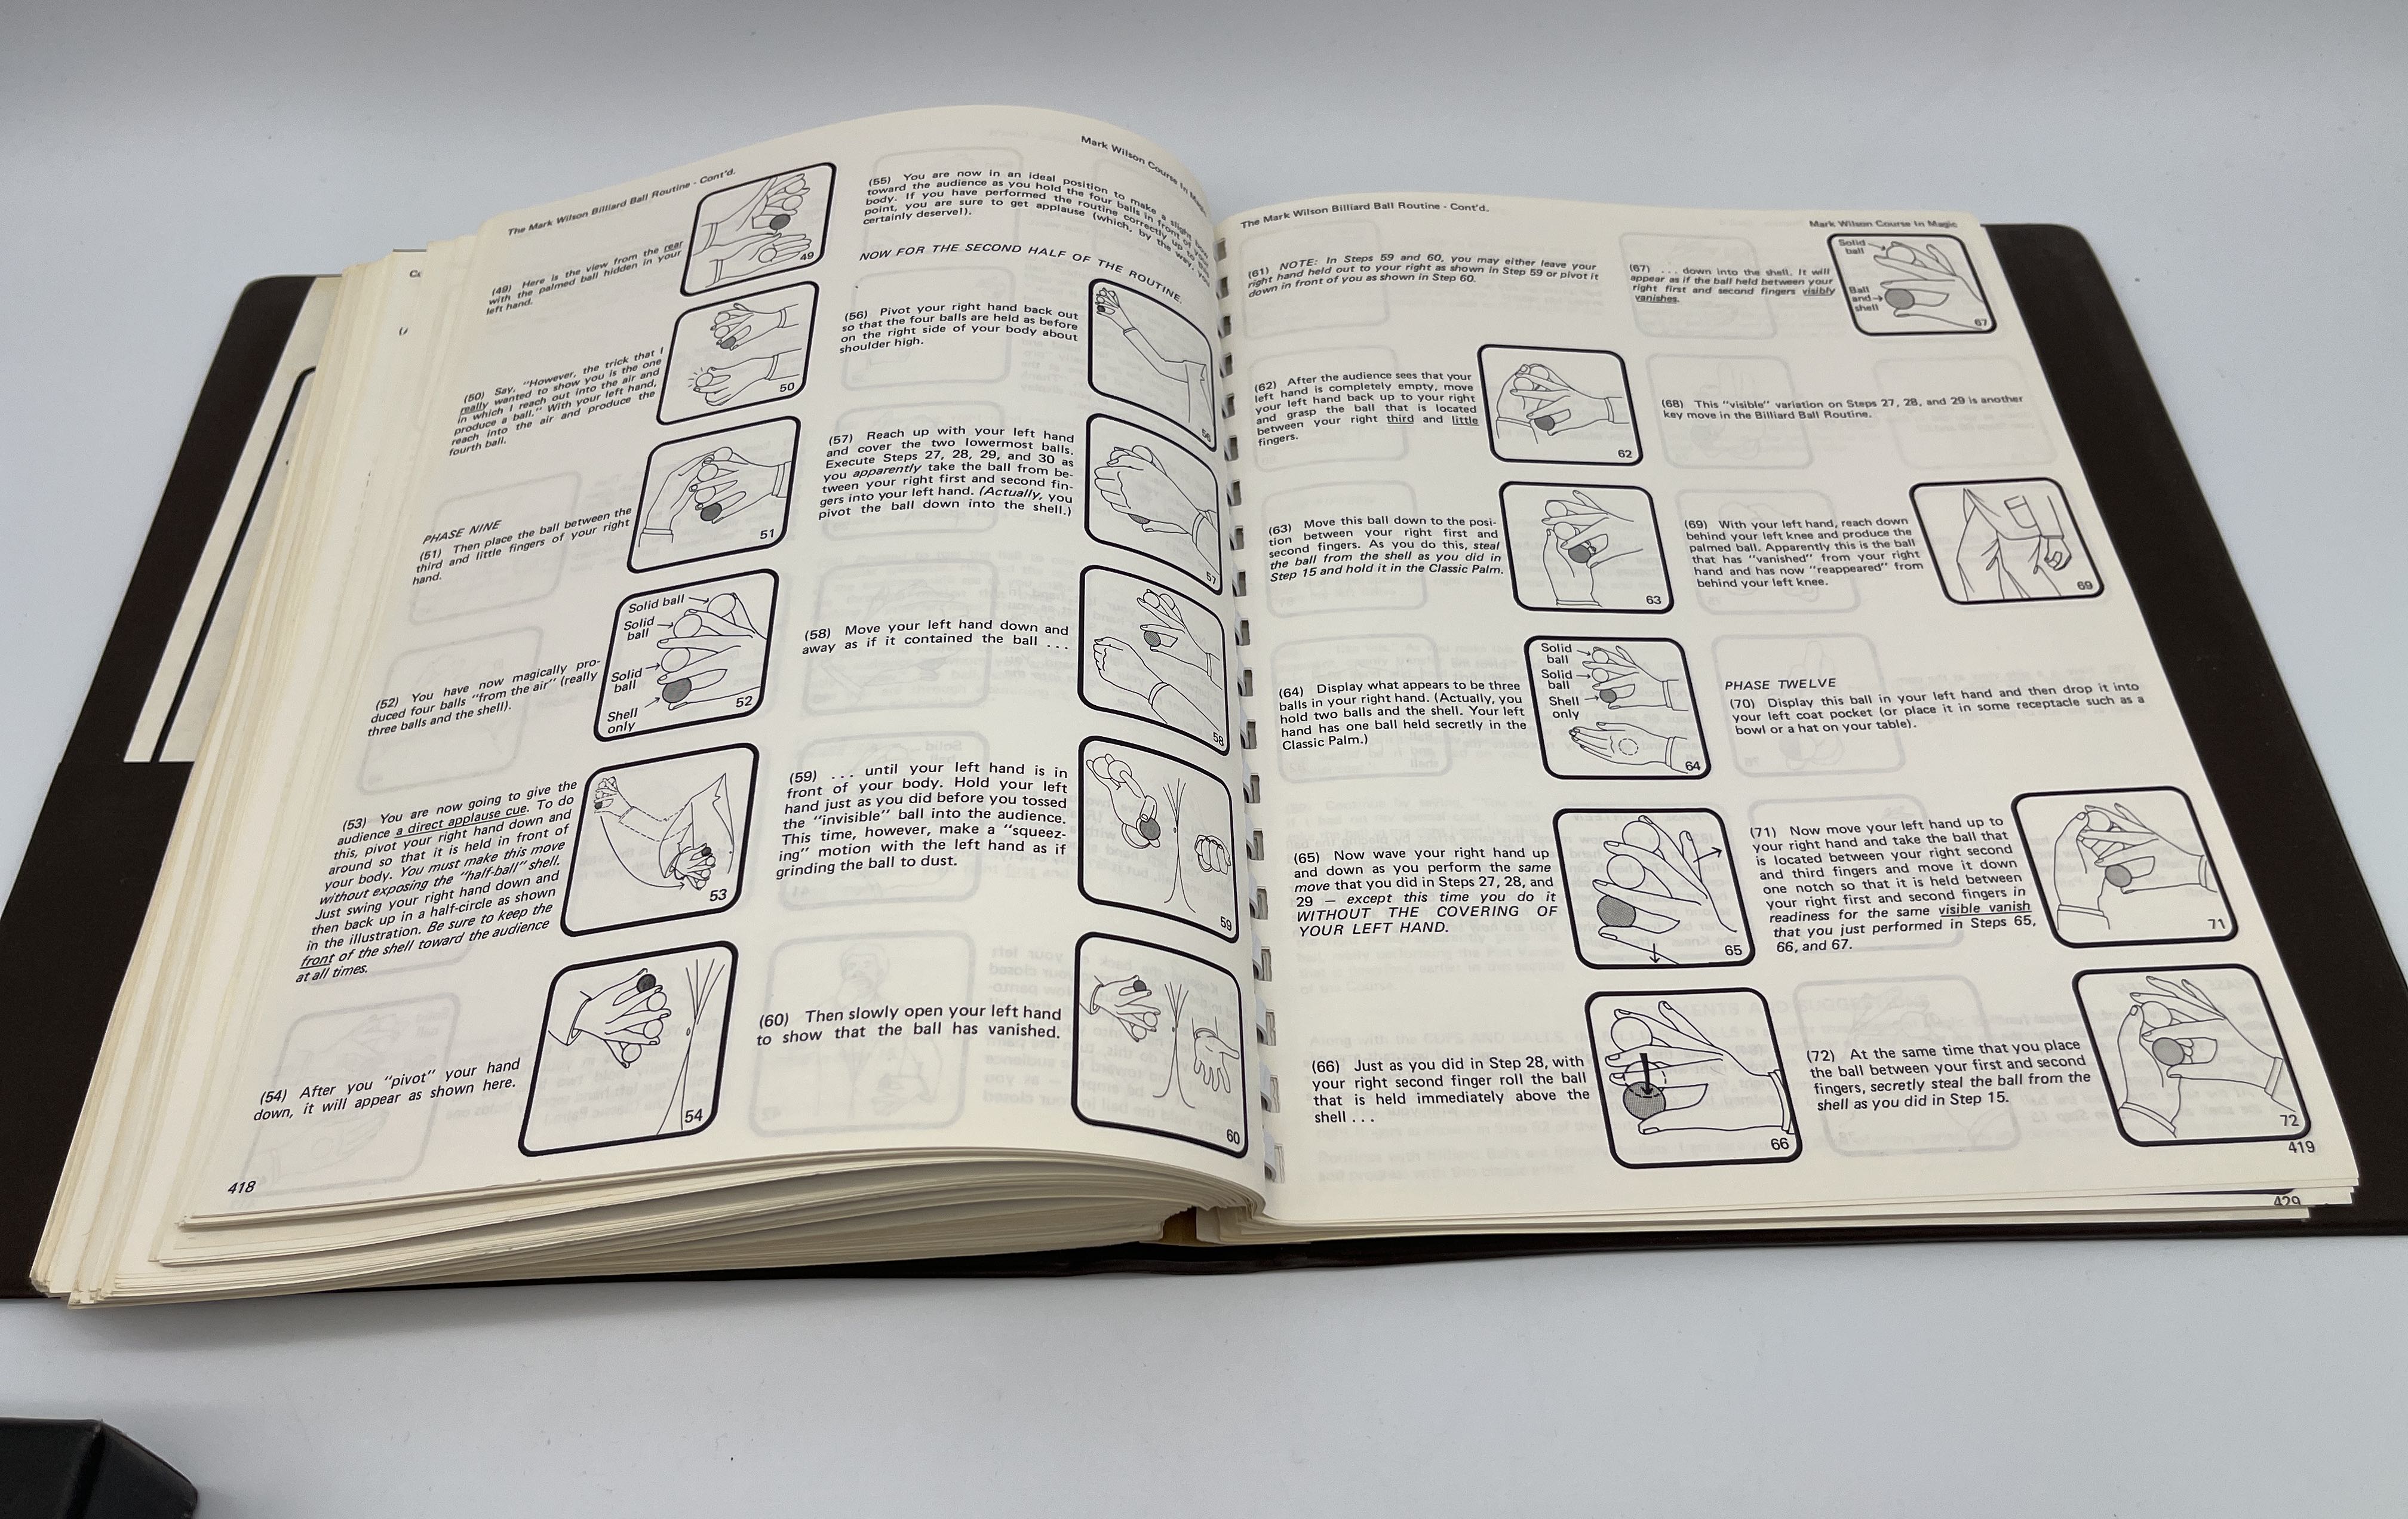 The Mark Wilson Billiard Ball Routine - Cont'd.
(49) Here is the view from the rear
with the palmed ball hidden in your
left hand.
49
(50) Say, "However, the trick that I
really wanted to show you is the one
in which I reach out into the air and
produce a ball." With your left hand,
reach into the air and produce the
fourth ball.
50
PHASE NINE
(51) Then place the ball between the
third and little fingers of your right
hand.
51
(52) You have now magically pro-
duced four balls "from the air" (really
three balls and the shell).
Solid ball
Solid
ball
Solid
ball
Shell
only
52
(53) You are now going to give the
audience a direct applause cue. To do
this, pivot your right hand down and
around so that it is held in front of
your body. You must make this move
without exposing the "half-ball" shell.
Just swing your right hand down and
then back up in a half-circle as shown
in the illustration. Be sure to keep the
front of the shell toward the audience
at all times.
53
(54) After you "pivot" your hand
down, it will appear as shown here.
54
418
Mark Wilson Course In
(55) You are now in an ideal position to make a slight bow
toward the audience as you hold the four balls in front of your
body. If you have performed the routine correctly up to this
point, you are sure to get applause (which, by the way, you
certainly deserve!).
NOW FOR THE SECOND HALF OF THE ROUTINE.
(56) Pivot your right hand back out
so that the four balls are held as before
on the right side of your body about
shoulder high.
56
(57) Reach up with your left hand
and cover the two lowermost balls.
Execute Steps 27, 28, 29, and 30 as
you apparently take the ball from be-
tween your right first and second fin-
gers into your left hand. (Actually, you
pivot the ball down into the shell.)
57
(58) Move your left hand down and
away as if it contained the ball . . .
58
(59) . . . until your left hand is in
front of your body. Hold your left
hand just as you did before you tossed
the "invisible" ball into the audience.
This time, however, make a "squeez-
ing" motion with the left hand as if
grinding the ball to dust.
59
(60) Then slowly open your left hand
to show that the ball has vanished.
60
The Mark Wilson Billiard Ball Routine - Cont'd.
Mark Wilson Course In Magic
(61) NOTE: In Steps 59 and 60, you may either leave your
right hand held out to your right as shown in Step 59 or pivot it
down in front of you as shown in Step 60.
(62) After the audience sees that your
left hand is completely empty, move
your left hand back up to your right
and grasp the ball that is located
between your right third and little
fingers.
62
(63) Move this ball down to the posi-
tion between your right first and
second fingers. As you do this, steal
the ball from the shell as you did in
Step 15 and hold it in the Classic Palm.
63
(64) Display what appears to be three
balls in your right hand. (Actually, you
hold two balls and the shell. Your left
hand has one ball held secretly in the
Classic Palm.)
Solid
ball
Solid
ball
Shell
only
64
(65) Now wave your right hand up
and down as you perform the same
move that you did in Steps 27, 28, and
29 — except this time you do it
WITHOUT THE COVERING OF
YOUR LEFT HAND.
65
(66) Just as you did in Step 28, with
your right second finger roll the ball
that is held immediately above the
shell . . .
66
(67) . . . down into the shell. It will
appear as if the ball held between your
right first and second fingers visibly
vanishes.
Solid
ball
Ball
and
shell
67
(68) This "visible" variation on Steps 27, 28, and 29 is another
key move in the Billiard Ball Routine.
(69) With your left hand, reach down
behind your left knee and produce the
palmed ball. Apparently this is the ball
that has "vanished" from your right
hand and has now "reappeared" from
behind your left knee.
69
PHASE TWELVE
(70) Display this ball in your left hand and then drop it into
your left coat pocket (or place it in some receptacle such as a
bowl or a hat on your table).
(71) Now move your left hand up to
your right hand and take the ball that
is located between your right second
and third fingers and move it down
one notch so that it is held between
your right first and second fingers in
readiness for the same visible vanish
that you just performed in Steps 65,
66, and 67.
71
(72) At the same time that you place
the ball between your first and second
fingers, secretly steal the ball from the
shell as you did in Step 15.
72
419
429